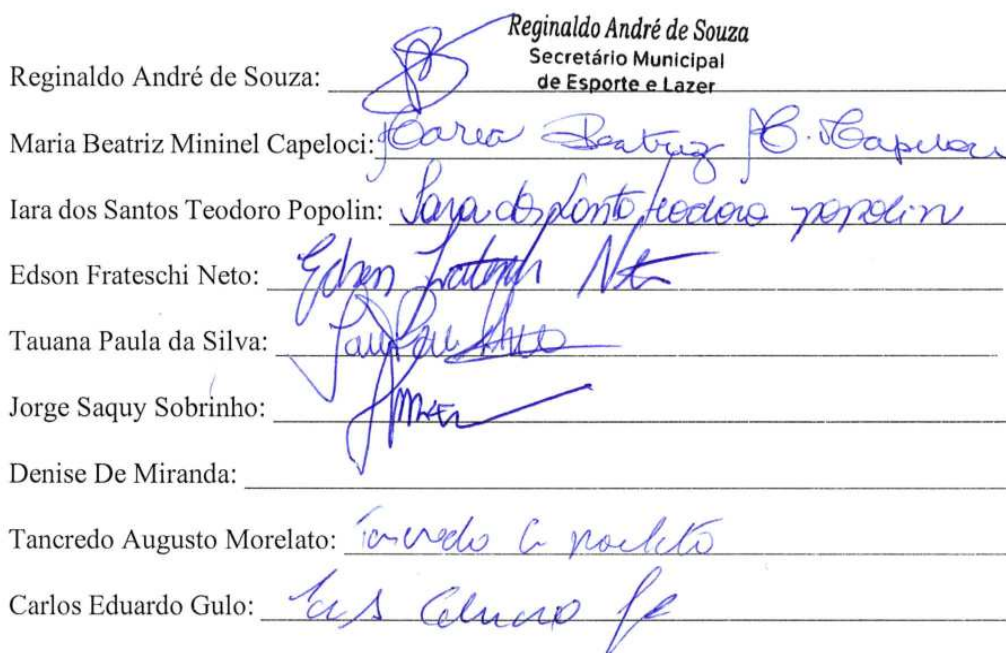 Reginaldo André de Souza
Secretário Municipal
de Esporte e Lazer
Reginaldo André de Souza:
Maria Beatriz Mininel Capeloci: Maria Beatriz M. Capeloci
Iara dos Santos Teodoro Popolin: Iara dos Santos Teodoro popolin
Edson Frateschi Neto: Edson Frateschi Neto
Tauana Paula da Silva:
Jorge Saquy Sobrinho:
Denise De Miranda:
Tancredo Augusto Morelato: Tancredo
Carlos Eduardo Gulo: